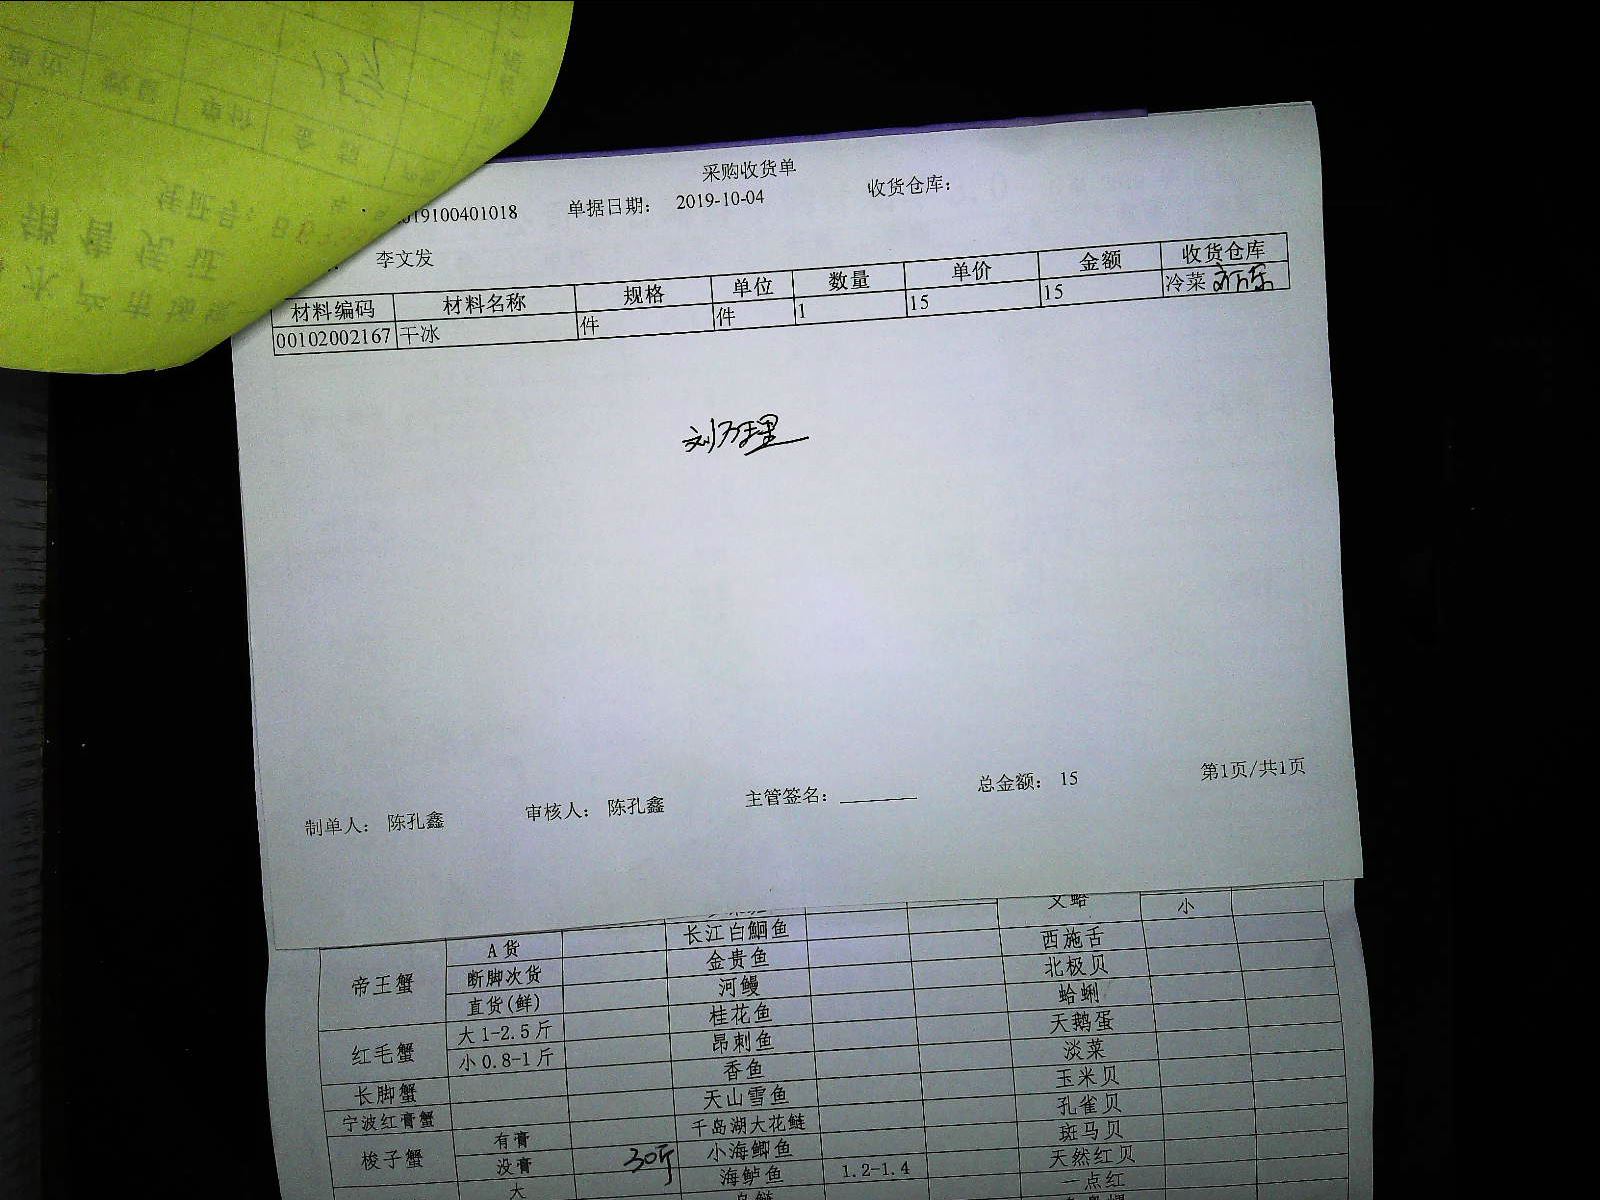 采购收货单
19100401018 单据日期: 2019-10-04 收货仓库:
李文发
材料编码 材料名称 规格 单位 数量 单价 金额 收货仓库
00102002167 干冰 件 件 1 15 15 冷菜
刘万理
制单人: 陈孔鑫 审核人: 陈孔鑫 主管签名: 总金额: 15 第1页/共1页
文蛤 小
帝王蟹 A货 长江白鮰鱼 西施舌
断脚次货 金贵鱼 北极贝
直货(鲜) 河鳗 蛤蜊
红毛蟹 大1-2.5斤 桂花鱼 天鹅蛋
小0.8-1斤 昂刺鱼 淡菜
长脚蟹 香鱼 玉米贝
宁波红膏蟹 天山雪鱼 孔雀贝
梭子蟹 有膏 千岛湖大花鲢 斑马贝
没膏 30斤 小海鲫鱼 天然红贝
大 海鲈鱼 1.2-1.4 一点红